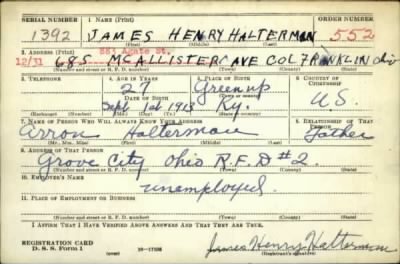 SERIAL NUMBER 1. NAME (Print) ORDER NUMBER
1392 JAMES HENRY HALTERMAN 552
(First) (Middle) (Last)
2. ADDRESS (Print) 553 Agate St.
12/31 685 MCALLISTER AVE COL FRANKLIN Ohio
(Number and street or R. F. D. number) (Town) (County) (State)
3. TELEPHONE 4. AGE IN YEARS 5. PLACE OF BIRTH 6. COUNTRY OF CITIZENSHIP
27 Greenup
DATE OF BIRTH (Town or county)
Sept 1st 1913 Ky. U.S.
(Exchange) (Number) (Mo.) (Day) (Yr.) (State or country)
7. NAME OF PERSON WHO WILL ALWAYS KNOW YOUR ADDRESS 8. RELATIONSHIP OF THAT PERSON
Arron Halterman Father
(Mr., Mrs., Miss) (First) (Middle) (Last)
9. ADDRESS OF THAT PERSON
Grove City Ohio R.F.D #2.
(Number and street or R. F. D. number) (Town) (County) (State)
10. EMPLOYER'S NAME
unemployed.
11. PLACE OF EMPLOYMENT OR BUSINESS
(Number and street or R. F. D. number) (Town) (County) (State)
I AFFIRM THAT I HAVE VERIFIED ABOVE ANSWERS AND THAT THEY ARE TRUE.
REGISTRATION CARD
D. S. S. Form 1 (over) James Henry Halterman
(Registrant's signature)